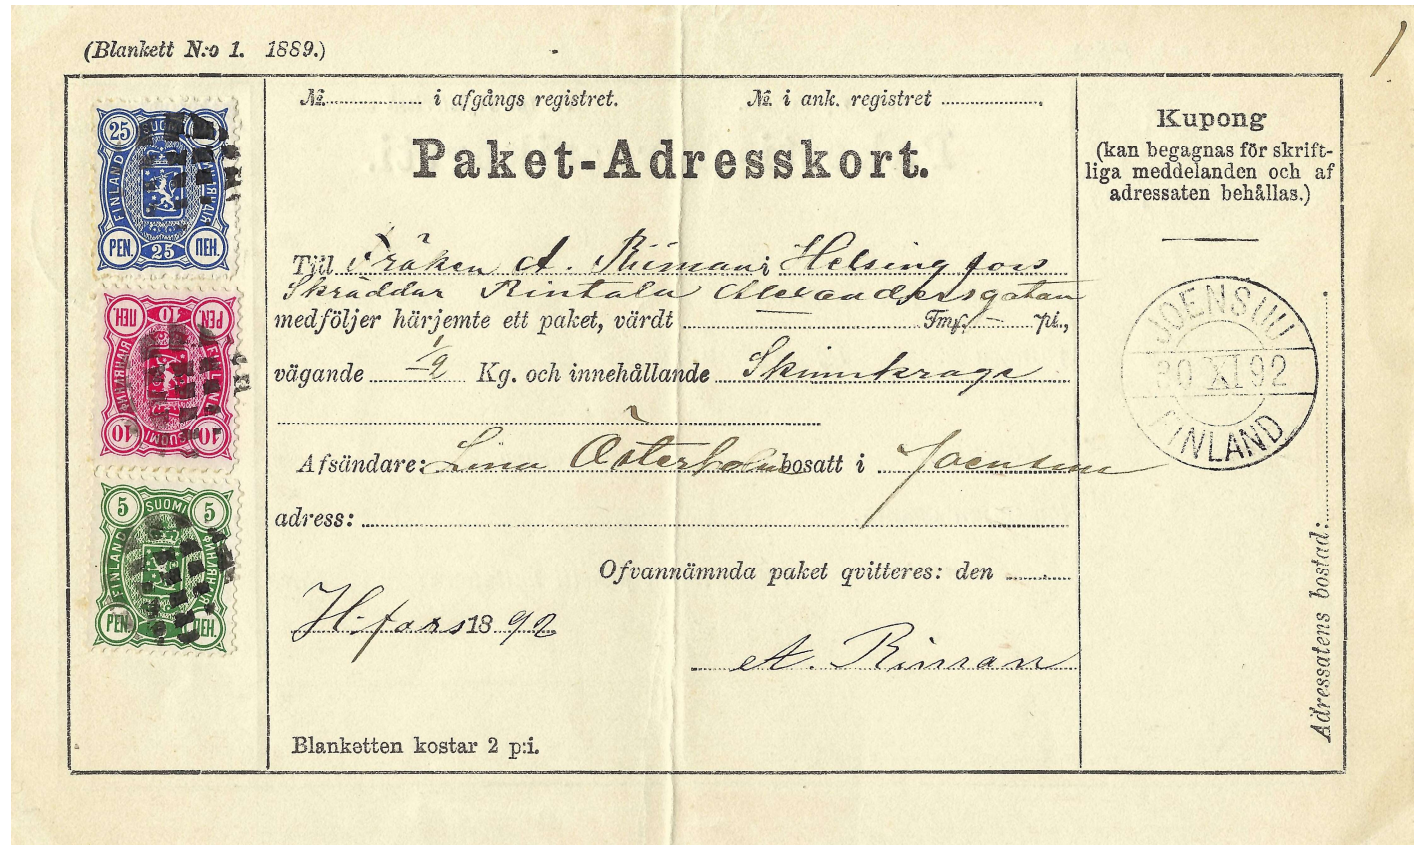 (Blankett N:o 1. 1889.)
№ i afgångs registret.
№ i ank. registret
Paket-Adresskort.
Till Fröken A. Riiman i Helsingfors
Skräddar Rintala Alexandersgatan
medföljer härjemte ett paket, värdt — Tmf, — pi.,
vägande 1/2 Kg. och innehållande Skinnkrage
Afsändare: Lina Österholm bosatt i Joensuu
adress:
Ofvannämnda paket qvitteres: den
H-fors 1892
A. Riman
Blanketten kostar 2 p:i.
Kupong
(kan begagnas för skrift-
liga meddelanden och af
adressaten behållas.)
JOENSUU
30 XI 92
FINLAND
Adressatens bostad:
25 SUOMI
FINLAND ФИНЛЯНДІЯ
PEN. 25 ПЕН.
10 SUOMI 10
FINLAND ФИНЛЯНДІЯ
PEN. 10 ПЕН.
5 SUOMI 5
FINLAND ФИНЛЯНДІЯ
PEN. ПЕН.